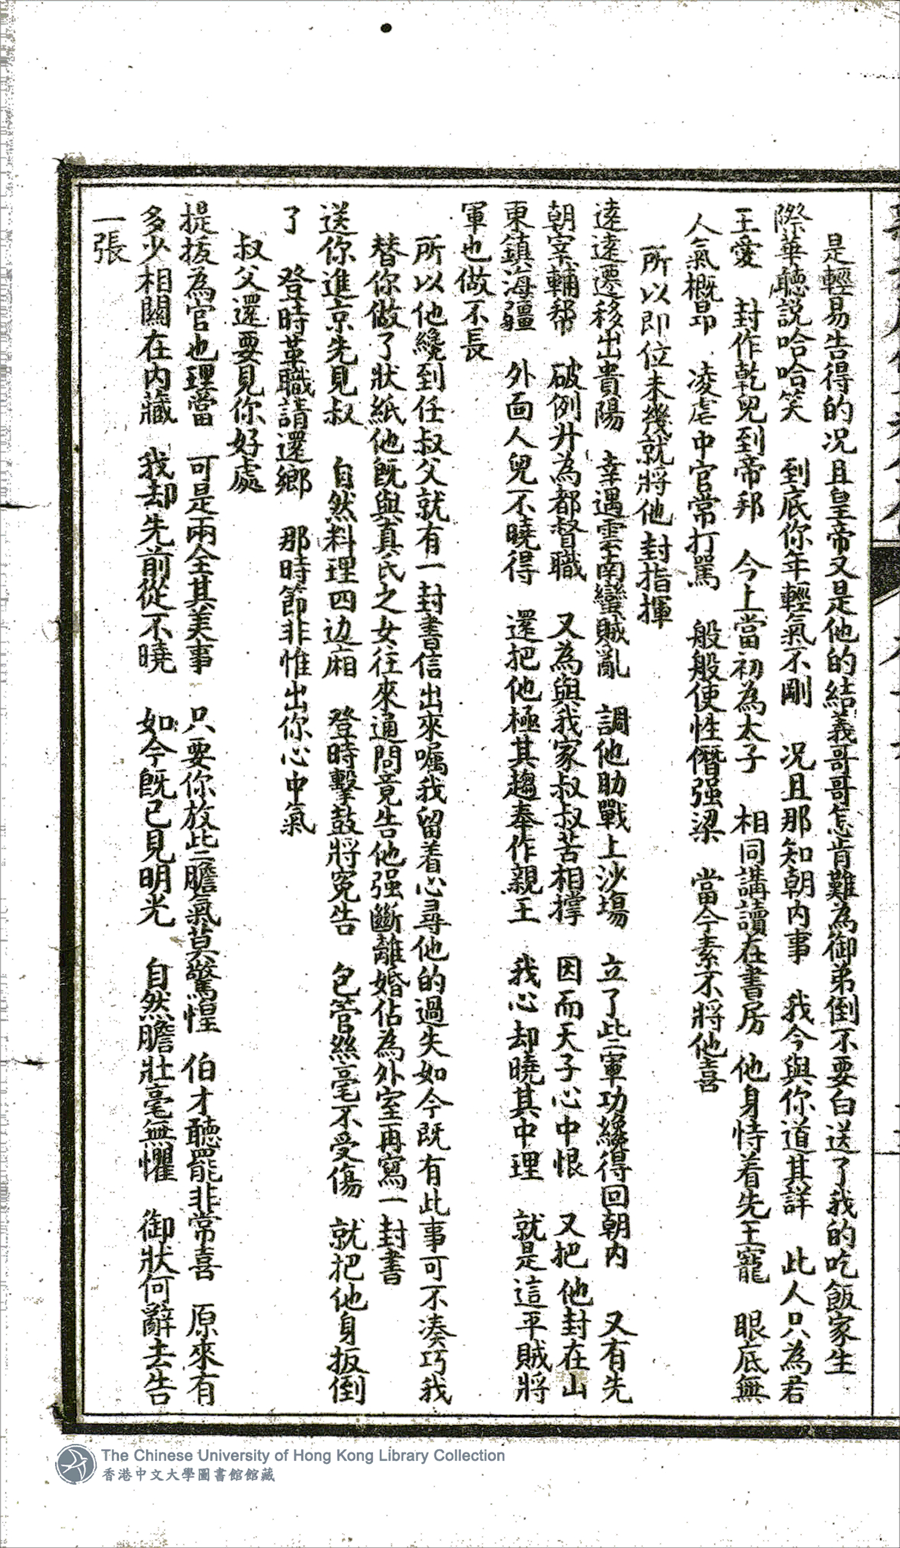 是輕易告得的况且皇帝又是他的結義哥哥怎肯難為御弟倒不要白送了我的吃飯家生
際華聽説哈哈笑 到底你年輕氣不剛 况且那知朝内事 我今與你道其詳 此人只為君
王愛 封作乾兒到帝邦 今上當初為太子 相同講讀在書房 他身恃着先王寵 眼底無
人氣概昂 凌虐中官常打罵 般般使性僭强梁 當今素不將他喜
所以即位未幾就將他封指揮
遠遠遷移出貴陽 幸遇雲南蠻賊亂 調他助戰上沙塲 立了此二軍功纔得回朝内 又有先
朝寡輔幇 破例升為都督職 又為與我家叔叔苦相撑 因而天子心中恨 又把他封在山
東鎮海疆 外面人兒不曉得 還把他極其趨奉作親王 我心却曉其中理 就是這平賊將
軍也做不長
所以他纔到任叔父就有一封書信出來嘱我留着心尋他的過失如今既有此事可不凑巧我
替你做了狀紙他既與真氏之女往來通問竟告他强斷離婚佔為外室再寫一封書
送你進京先見叔 自然料理四边廂 登時擊鼓將寃告 包管絲毫不受傷 就把他身扳倒
了 登時革職請還鄉 那時節非惟出你心中氣
叔父還要見你好處
提拔為官也理當 可是兩全其美事 只要你放此二膽氣莫驚惶 伯才聽罷非常喜 原來有
多少相關在内藏 我却先前從不曉 如今旣已見明光 自然膽壯毫無懼 御狀何辭去告
一張
The Chinese University of Hong Kong Library Collection
香港中文大學圖書館館藏